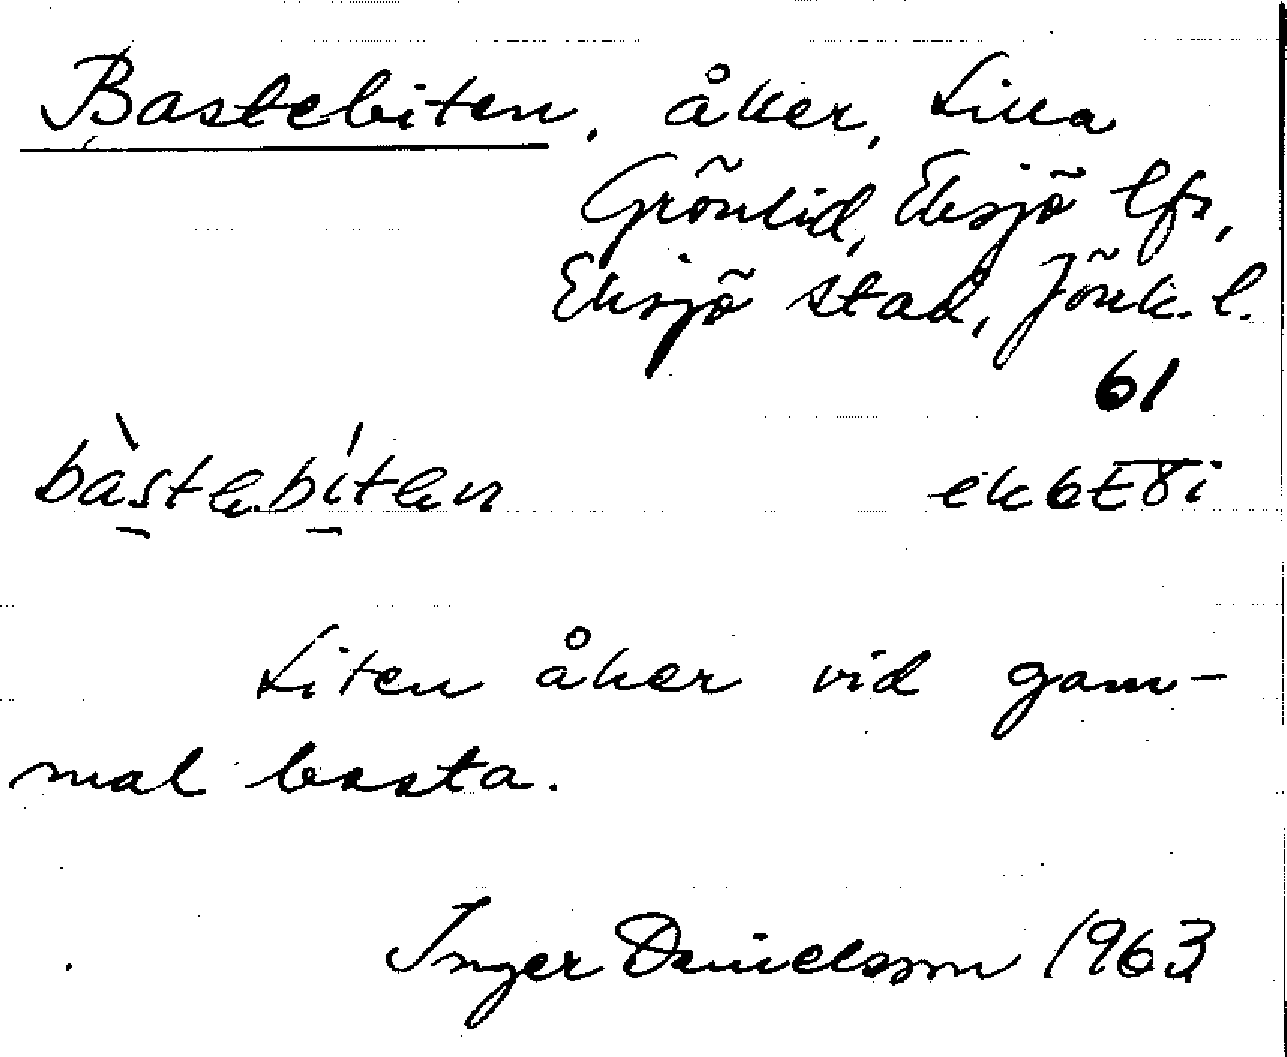 Bastebiten, åker, Lilla
Grönlid, Eksjö lfs,
Eksjö stad, Jönk. l.
61
bàstebíten
Liten åker vid gam-
mal basta.
Inger Danielsson 1963